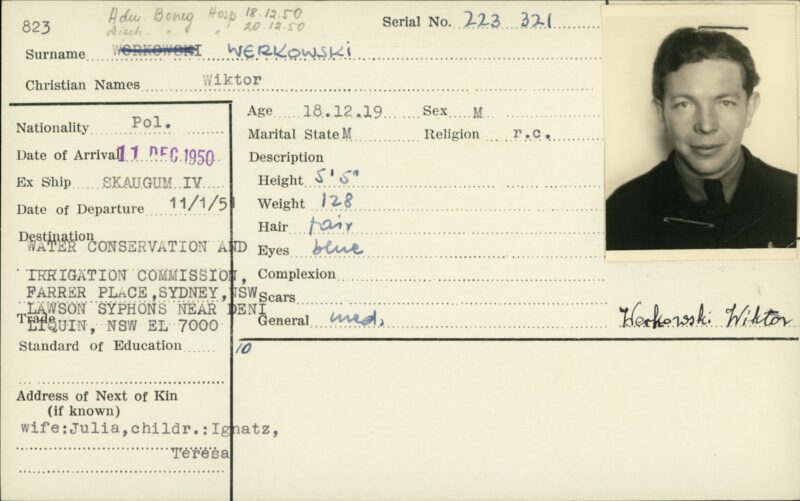 823
Adm. Boneg Hosp 18.12.50
Disch. " " 20.12.50
Serial No. 223 321
Surname WORKOWSKI WERKOWSKI
Christian Names Wiktor
Nationality Pol.
Date of Arrival 11 DEC 1950
Ex Ship SKAUGUM IV
Date of Departure 11/1/51
Destination
WATER CONSERVATION AND
IRRIGATION COMMISSION,
FARRER PLACE, SYDNEY, NSW
LAWSON SYPHONS NEAR DENI
Trade
LIQUIN, NSW EL 7000
Standard of Education
Address of Next of Kin
(if known)
wife:Julia,childr.:Ignatz,
Teresa
Age 18.12.19 Sex M
Marital State M Religion r.c.
Description
Height 5'5"
Weight 128
Hair fair
Eyes blue
Complexion
Scars
General med.
Werkowski Wiktor
10